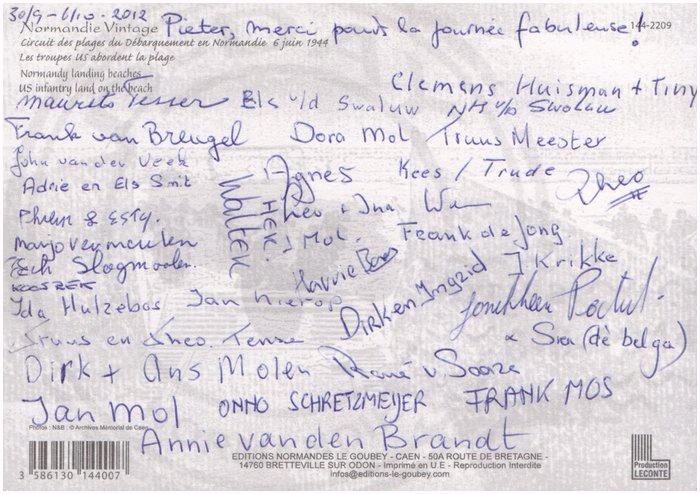 30/9 - 6/10 - 2012
Pieter, merci pour la journée fabuleuse!
Normandie Vintage
144-2209
Circuit des plages du Débarquement en Normandie 6 juin 1944
Les troupes US abordent la plage
Normandy landing beaches
US infantry land on the beach
Clemens Huisman + Tiny
Els v/d Swaluw
Frank van Breugel
Dora Mol / Truus Meester
John van der Veek
Agnes
Kees / Trude
Theo
Adrie en Els Smit
Walter
HEK.
Theo + Ina
Marjo Vermeulen
J Mol.
Frank de Jong
Harrie
J Krikke
Ida Hulzebos
Jan Nierop
Dirk en Ingrid
Truus en Theo
& Sia (dè belga)
Dirk + Ans Molen
René v Sooze
Jan Mol
ONNO SCHRETZMEIJER
FRANK MOS
Photos : N&B : © Archives Mémorial de Caen
Annie van den Brandt
3 586130 144007
EDITIONS NORMANDES LE GOUBEY - CAEN - 50A ROUTE DE BRETAGNE -
14760 BRETTEVILLE SUR ODON - Imprimé en U.E - Reproduction Interdite
infos@editions-le-goubey.com
Production
LECONTE